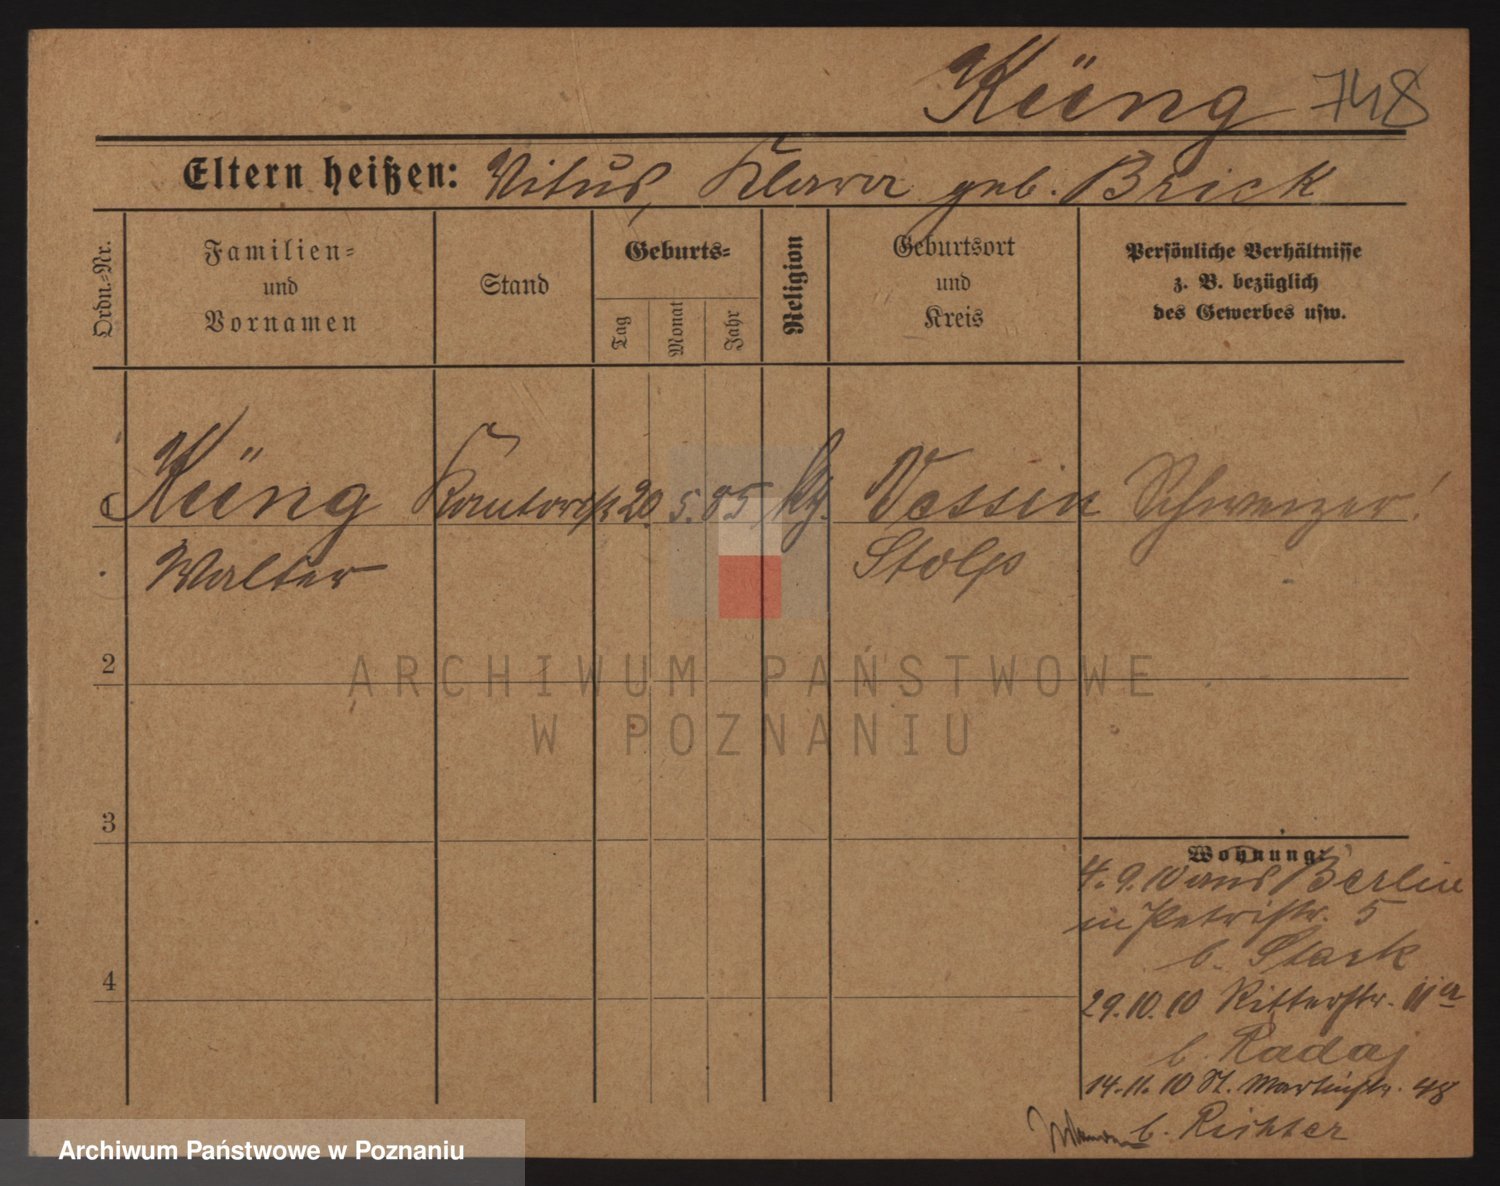 Küng 748
Eltern heißen: Vitus, Klara geb. Brick
Ordn.-Nr.
Familien-
und
Vornamen
Stand
Geburts-
Tag
Monat
Jahr
Religion
Geburtsort
und
Kreis
Persönliche Verhältnisse
z. B. bezüglich
des Gewerbes usw.
1 Küng Kontorist 20. 5. 85 kg. Vessin Schweizer!
Walter Stolp
2
ARCHIWUM PAŃSTWOWE
W POZNANIU
3
Wohnung:
4. 9. 10 aus Berlin
in Petristr. 5
b. Stark
4
29. 10. 10 Ritterstr. 11a
b. Radaj
14. 11. 10 St. Martinstr. 48
b. Richter
Archiwum Państwowe w Poznaniu